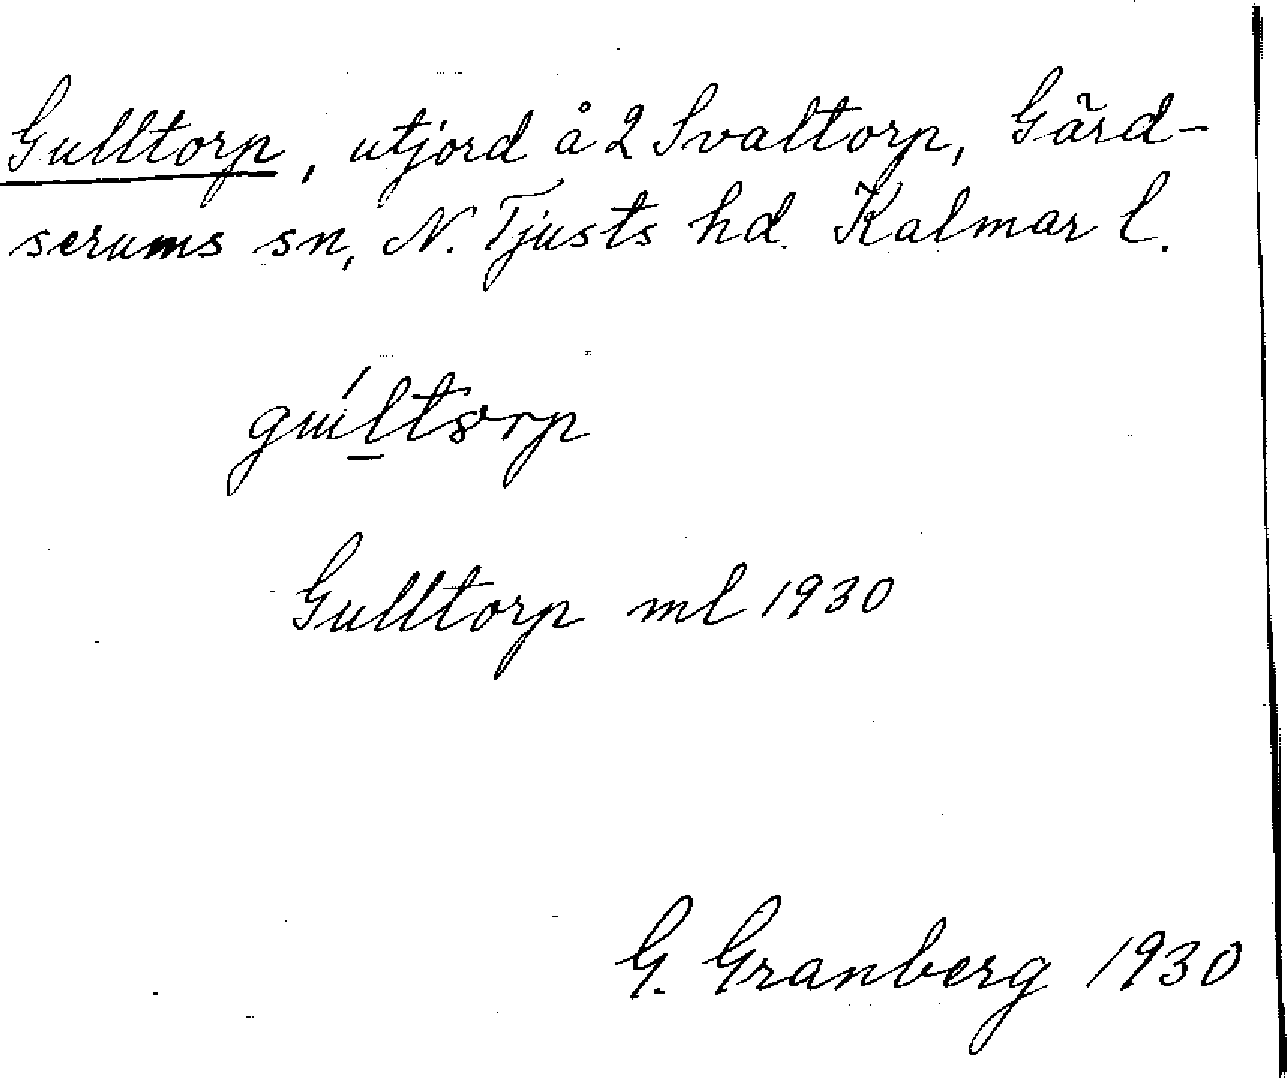 Gulltorp, utjord å 2 Svaltorp, Gärd-
serums sn, N. Tjusts hd. Kalmar l.
gúltorp
Gulltorp ml 1930
G. Granberg 1930